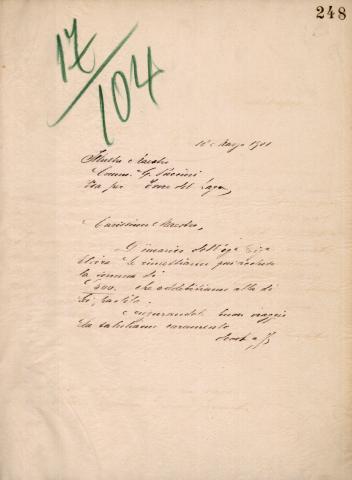 248
17/104
Marzo 1901
Illustre Maestro
Comm. G. Puccini
Torre del Lago
Carissimo Maestro,
D'incarico dell'eg. Sig.a
Elvira Le rimettiamo
la somma di
500. che addebitiamo alla di
Lei partita.
augurandole buon viaggio
La salutiamo caramente